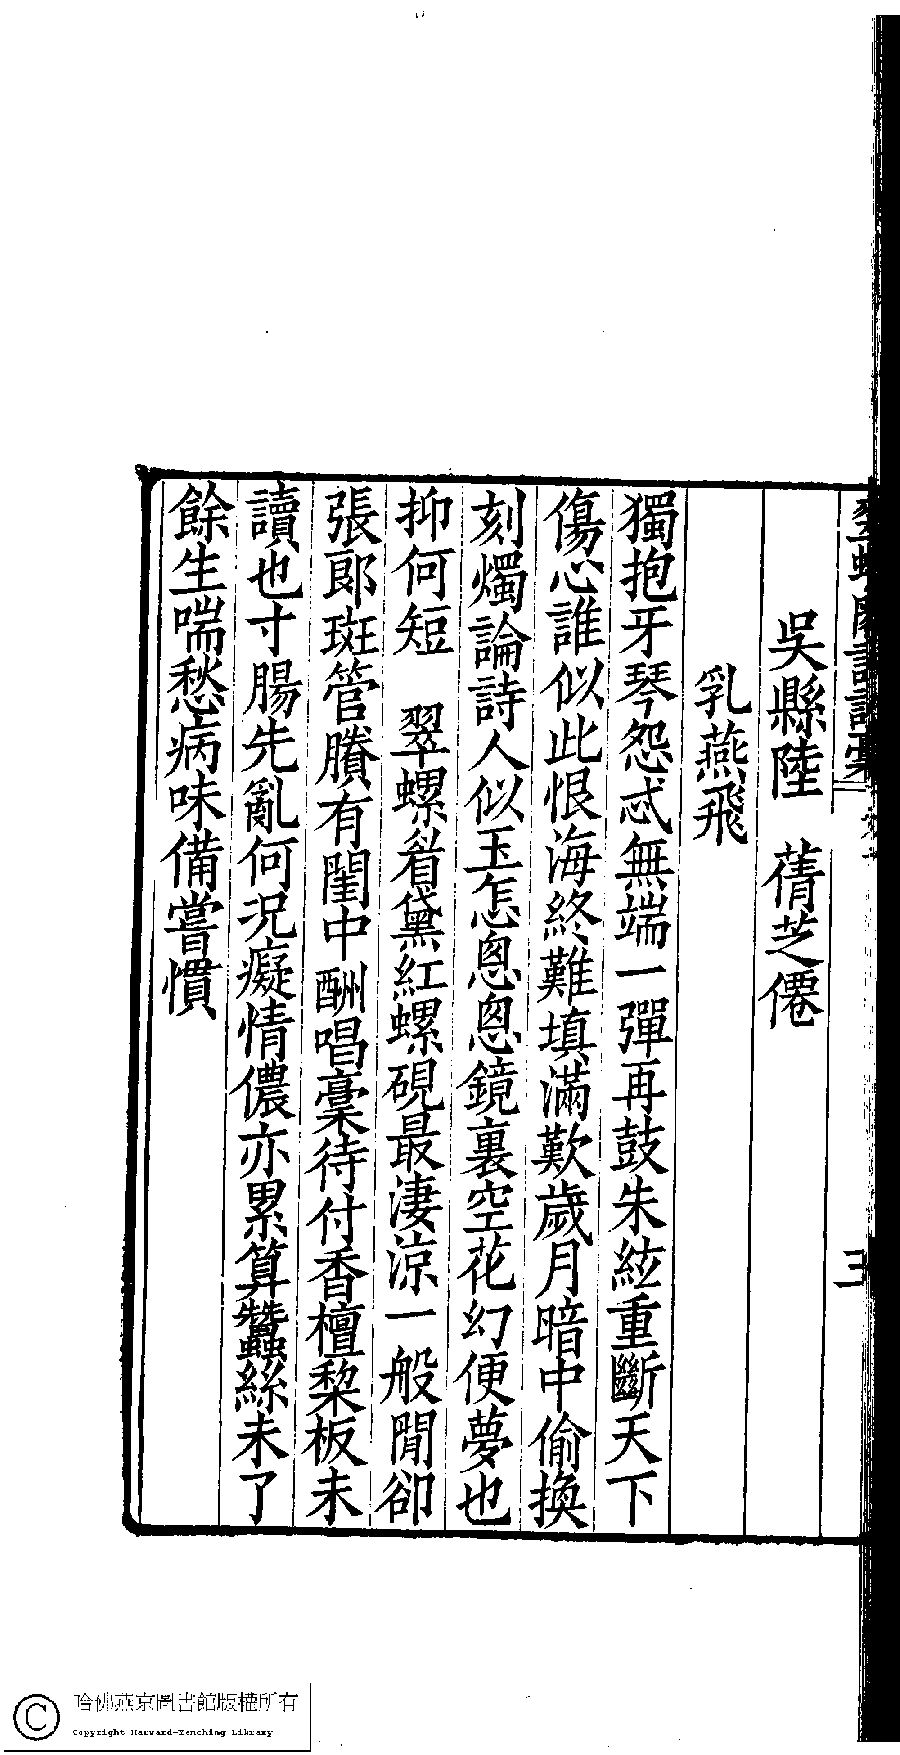 吳縣陸　蒨芝僊
乳燕飛
獨抱牙琴怨忒無端一彈再鼓朱絃重斷天下
傷心誰似此恨海終難填滿歎歲月暗中偷換
刻燭論詩人似玉怎悤悤鏡裏空花幻便夢也
抑何短　翠螺眉黛紅螺硯最淒涼一般閒卻
張郎斑管賸有閨中酬唱稾待付香檀棃板未
讀也寸腸先亂何況癡情儂亦累算蠶絲未了
餘生喘愁病味備嘗慣
哈佛燕京圖書館版權所有
Copyright Harvard-Yenching Library